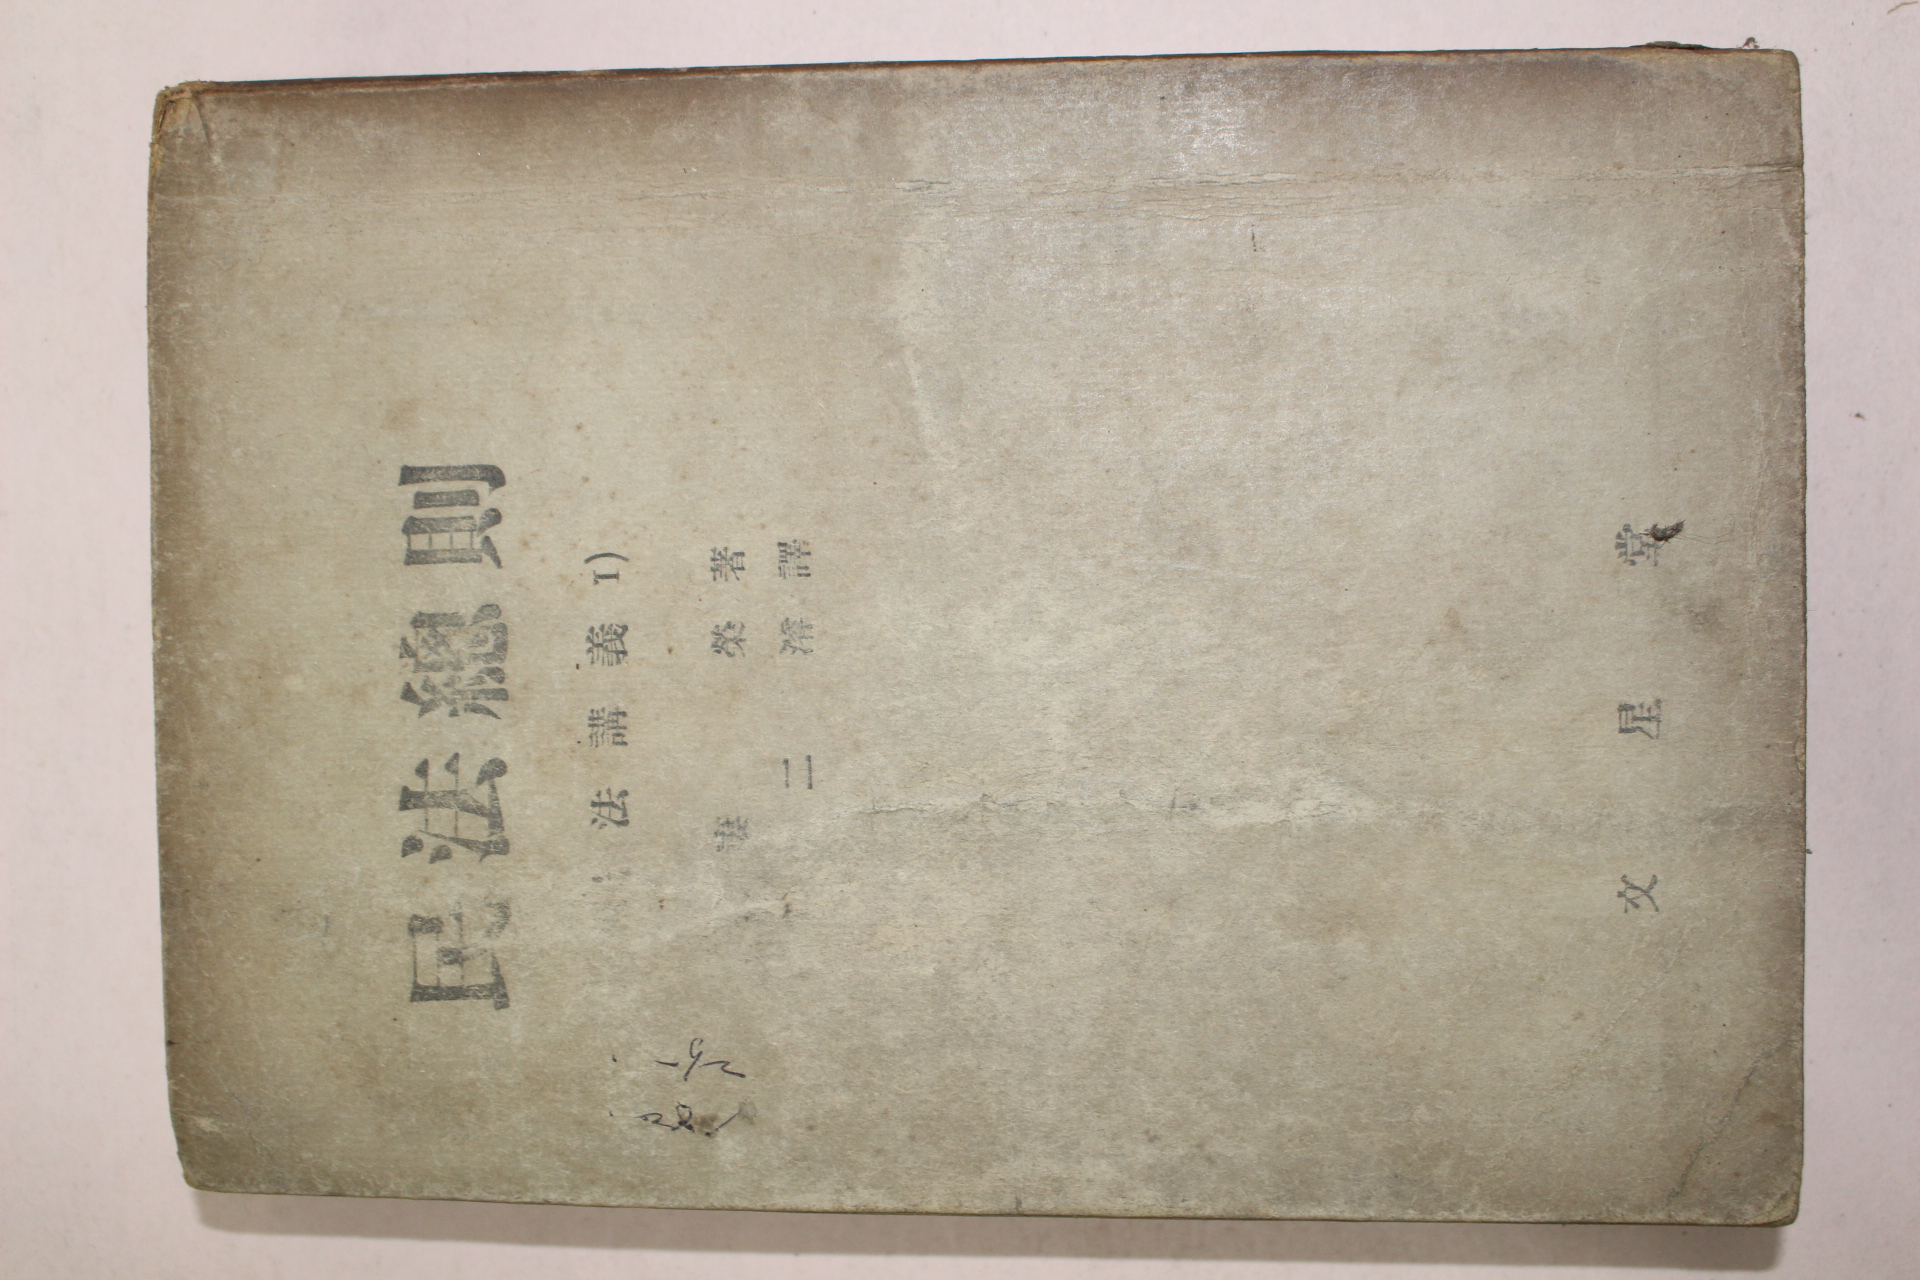 民法總則
法講義 I)
妻 榮著
二濬譯
文星堂